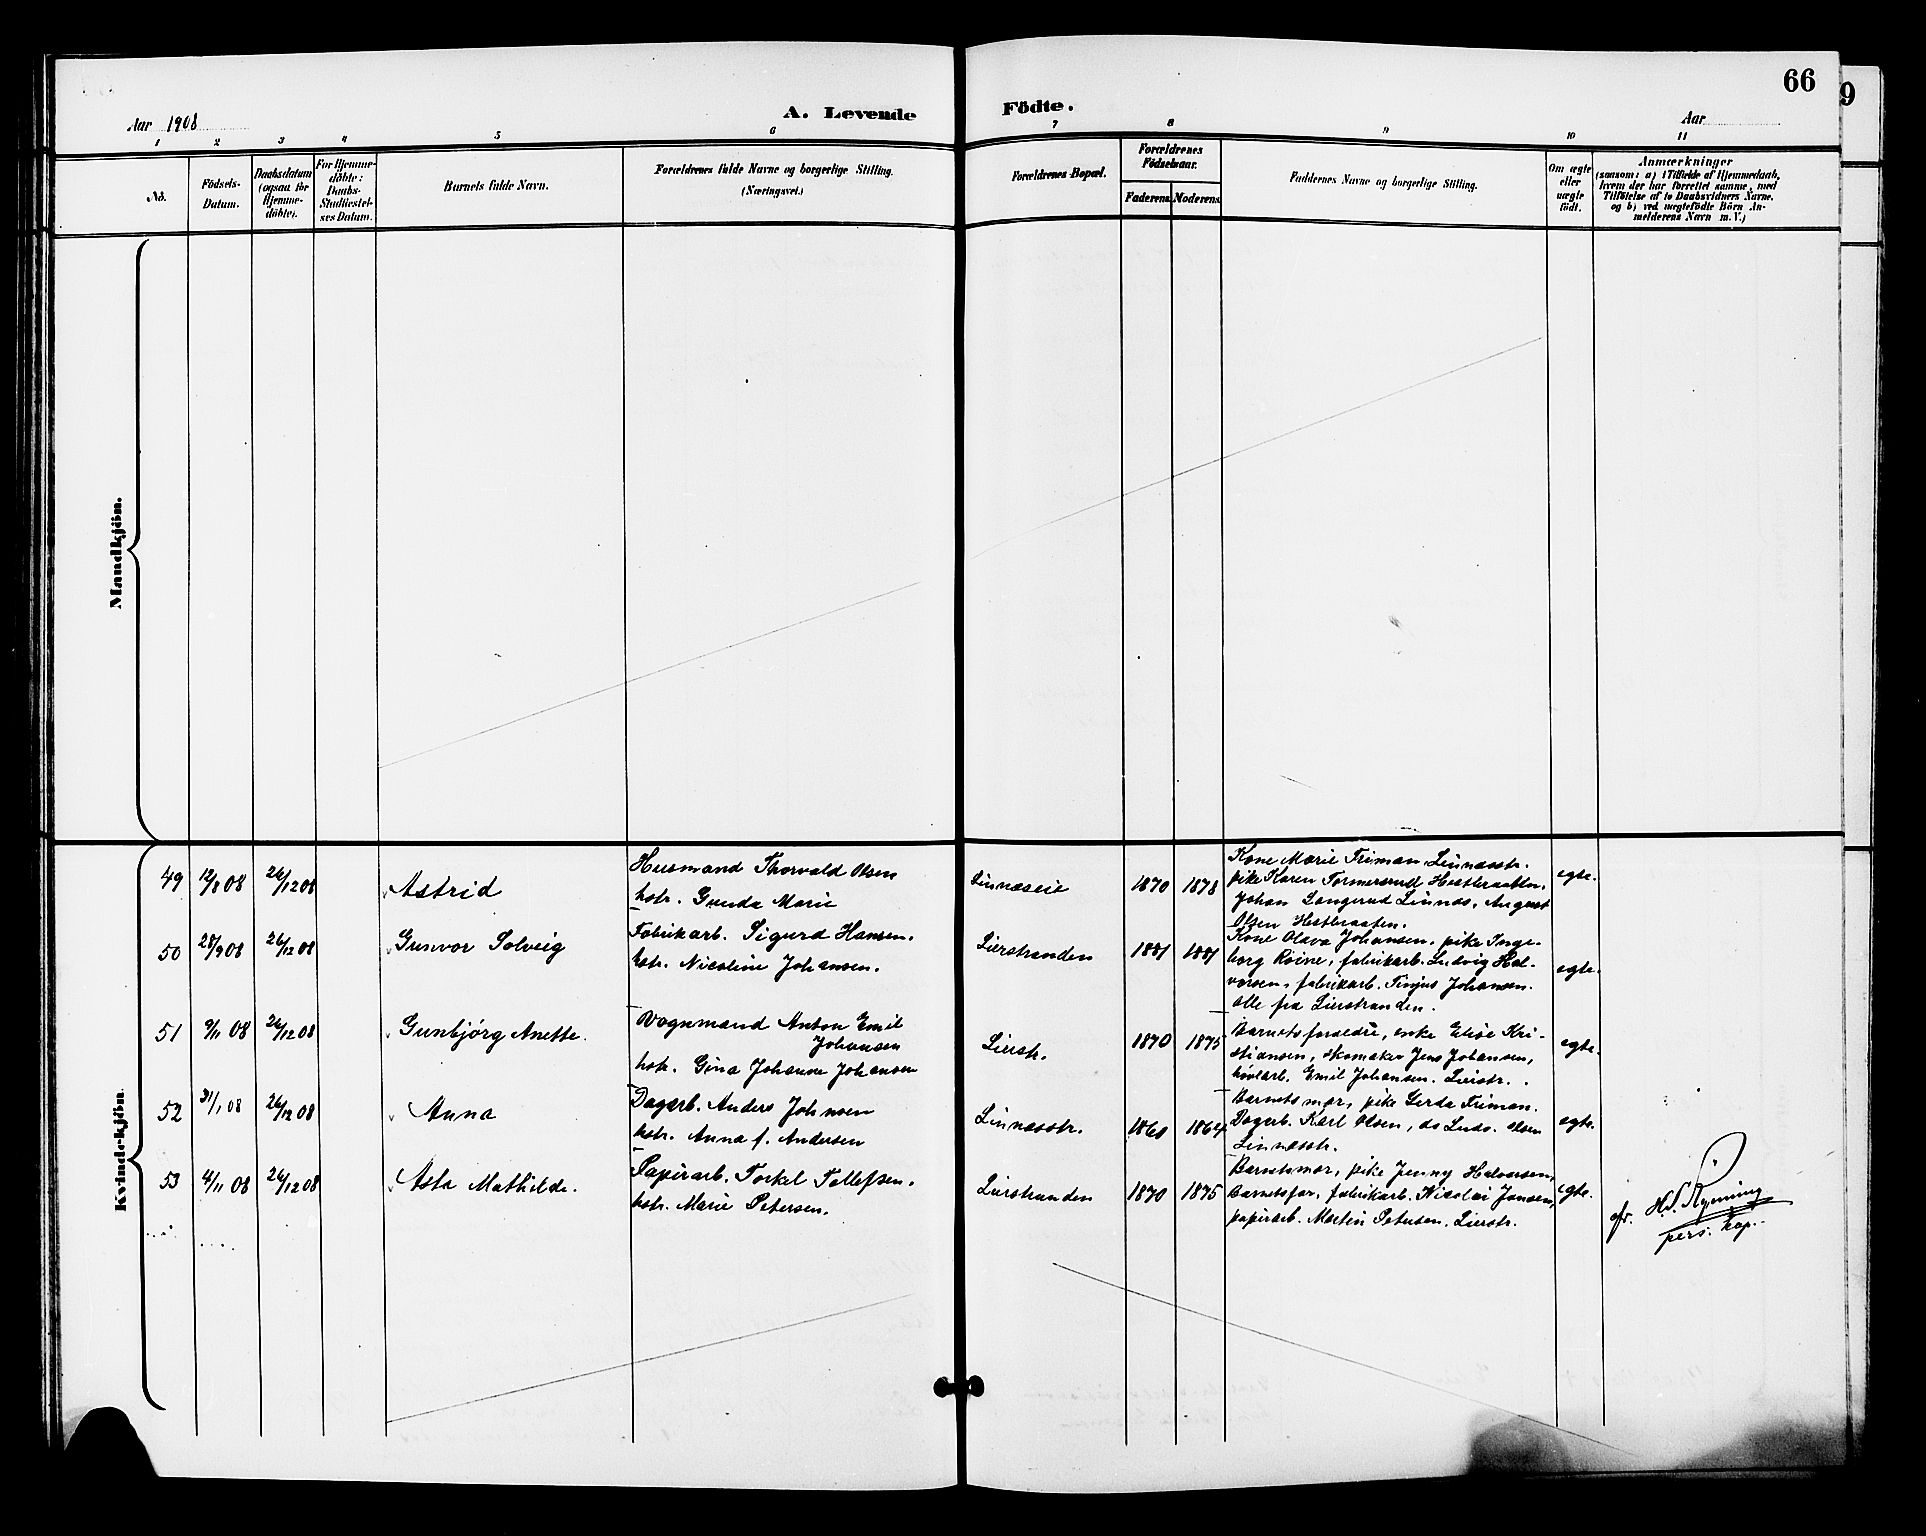 66
9
Aar 1908
A. Levende
Födte.
Aar
1 2 3 4 5 6 7 8 9 10 11
No.
Födsels-
Datum.
Daabsdatum
(ogsaa for
Hjemme-
döbte).
For Hjemme-
döbte:
Daabs-
Stadfæstel-
ses Datum.
Barnets fulde Navn.
Forældrenes fulde Navne og borgerlige Stilling.
(Næringsvei.)
Forældrenes Bopæl.
Forældrenes
Födselsaar.
Faderens Moderens
Faddernes Navne og borgerlige Stilling.
Om ægte
eller
uægte
födt.
Anmærkninger
(saasom: a) i Tilfælde af Hjemmedaab,
hvem der har forrettet samme, med
Tilföielse af to Daabsvidners Navne.
og b) ved uægtefödte Börn An-
melderens Navn m. V.)
Mandkjön.
Kvindekjön.
49 12/8 08 26/12 08 Astrid
Husmand Thorvald Olsen
hstr. Gunda Marie
Linnæseie 1870 1878
Kone Marie Friman, Linnæsstr.
pike Karen
Johan Langerud Linnæs, August
Olsen Hestbraaten.
egte.
50 28/9 08 26/12 08 Gunvor Solveig
Fabrikarb. Sigurd Hansen.
hstr. Nicoline Johansen.
Lierstranden 1881 1881
Kone Olava Johansen, pike Inge-
borg Roine, fabrikarb. Ludvig Hal-
vorsen, fabrikarb. Johansen.
alle fra Lierstranden.
egte.
51 9/11 08 26/12 08 Gunbjörg Anette.
Vognmand Anton Emil
Johansen
hstr. Gina Johanne Johansen
Lierstr. 1870 1875
Barnets foreldre, enke Elise Kri-
stiansen, skomaker Jens Johansen,
hövlarb. Emil Johansen. Lierstr.
egte.
52 31/1 08 26/12 08 Anna
Dagarb. Anders Johnsen
hstr. Anna f. Andersen
Linnæsstr. 1861 1864
Barnets mor, pike Gerda Friman.
Dagarb. Karl Olsen, do Ludv. Olsen
Linnæsstr.
egte.
53 4/11 08 26/12 08 Asta Mathilde.
Papirarb. Torkel Tollefsen.
hstr. Marie Petersen.
Lierstranden 1870 1875
Barnets mor, pike Jenny Halvorsen,
Barnets far, fabrikarb. Nicolai Jansen,
papirarb. Martin Petersen. Lierstr.
egte.
H. S. Ryming
pers. kap.